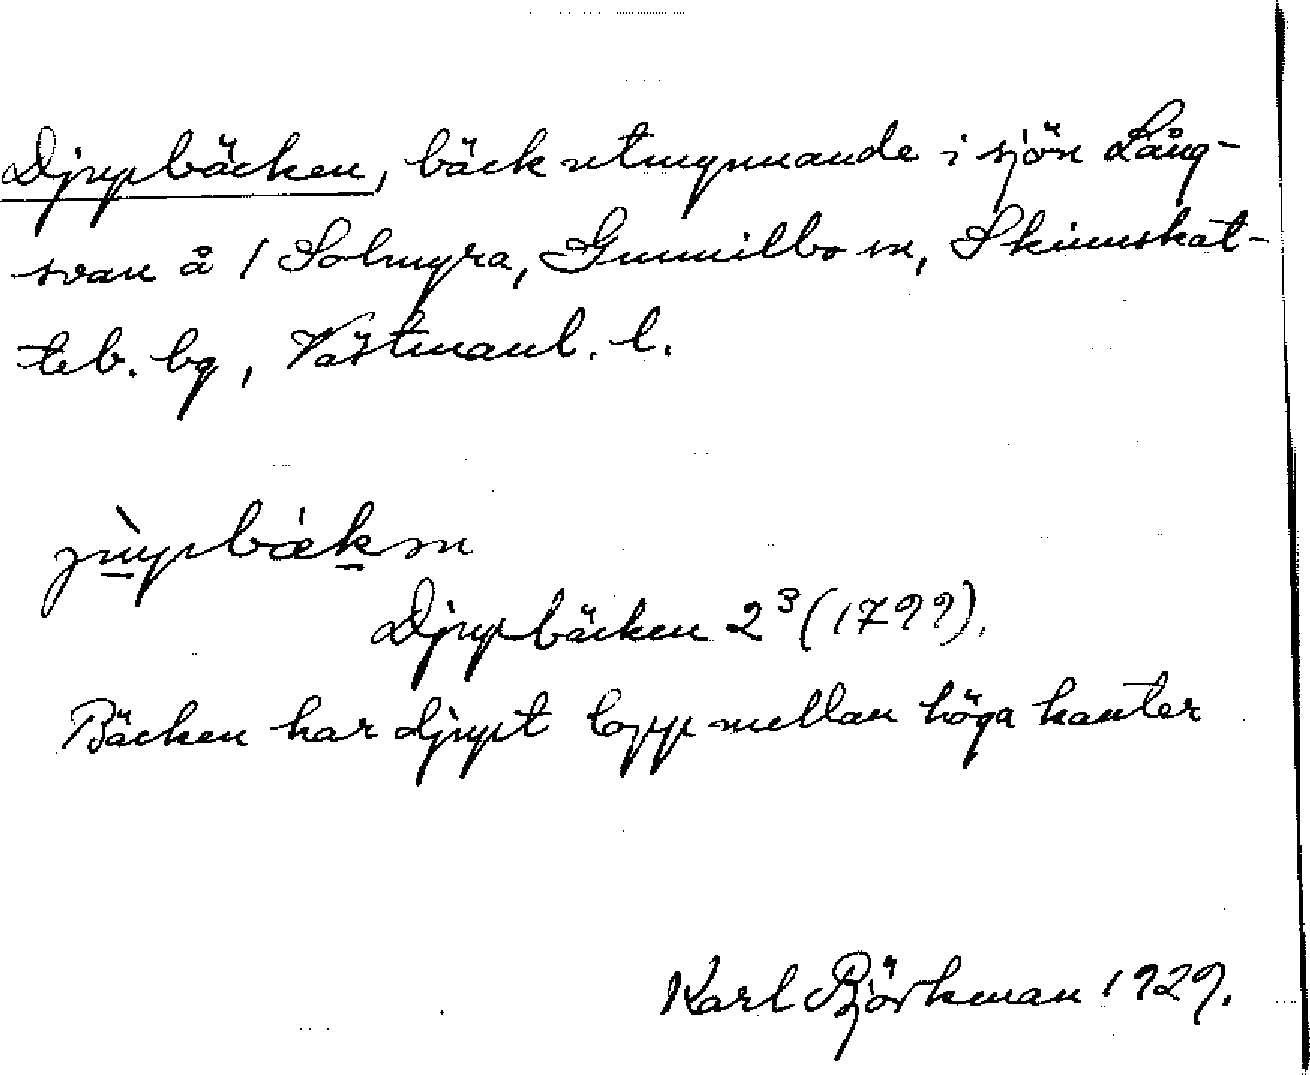 Djupbäcken, bäck utmynnande i sjön Lång-
svan å 1 Solmyra, Gunnilbo sn, Skinnskat-
teb. bg, Västmanl. l.
jùpbækɱ
Djupbäcken 2³ (1799).
Bäcken har djupt lopp mellan höga kanter
Karl Björkman 1929.